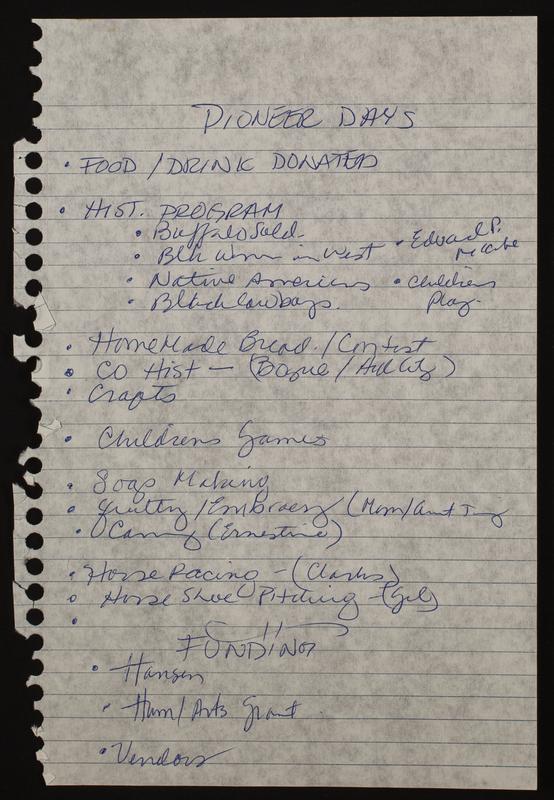 PIONEER DAYS
• FOOD / DRINK DONATED
• HIST. PROGRAM
• Buffalo Sold.
• Blk Women in West
• Edward P. McCabe
• Native Americans
• Childrens Play.
• Black Cowboys.
• HomeMade Bread. / Contest
• CO Hist — (Bogue /
• Crafts
• Childrens Games
• Soap Making
• Quilting / Embroery (Mom/Aunt
• Caning (Ernestine)
• Horse Racing - (Clarks)
• Horse Shoe Pitching -
FUNDING
• Hansen
• Hum/Arts Grant
• Vendors